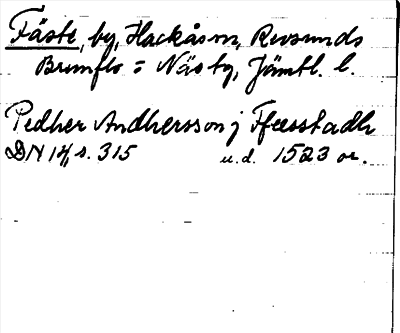 Fäste, by, Hackåsm, Revsunds
Brunflo o Näs tg, Jämtl. l.
Pedher Andhersson j Ffæsstadh
DN 14, s. 315 u.d. 1523 or.